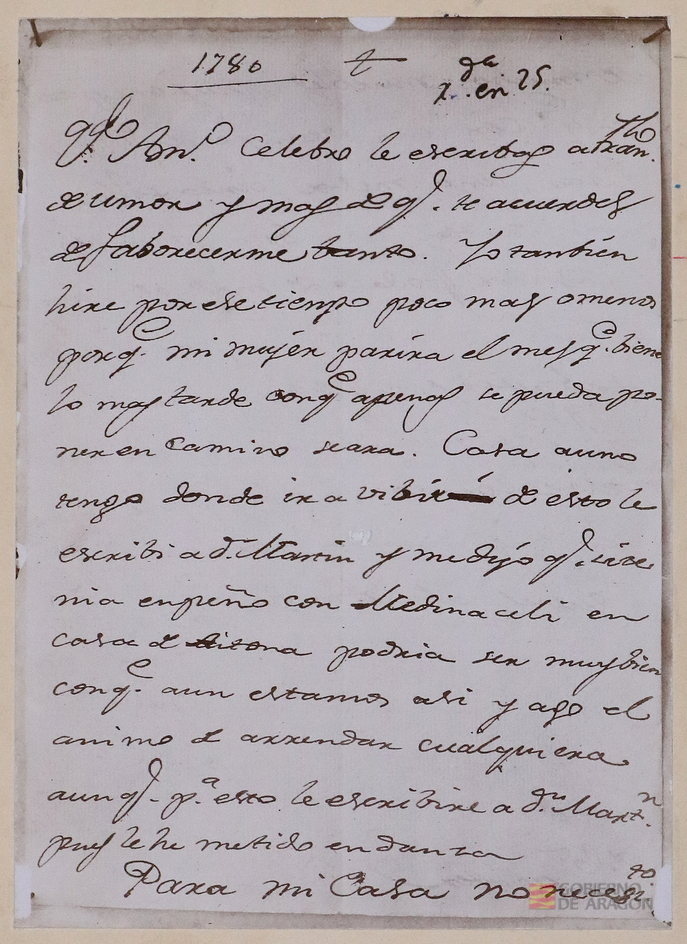 1780 † Z.ª en. 25.
qdº Anº. Celebro le escribas a tan tº
de umor y mas de q.e te acuerdes
de faborecerme tanto. Yo tambien
hire por ese tiempo poco mas o menos
porq.e mi mujer parira el mes q.e biene
lo mas tarde conq.e apenas se pueda po-
ner en camino seara. Casa auno
tengo donde ir a vibir de esto le
escribi a d.n Martin y me dijo q.e si te
nia enpeño con Medinaceli en
casa de Aitona podria ser muy bien
conq.e aun estamos asi y ago el
animo de arrendar cualquiera
aunq.e p.a esto le escribire a d.n Mart.n
pues le he metido en danza
Para mi Casa no neces.to
GOBIERNO
DE ARAGON